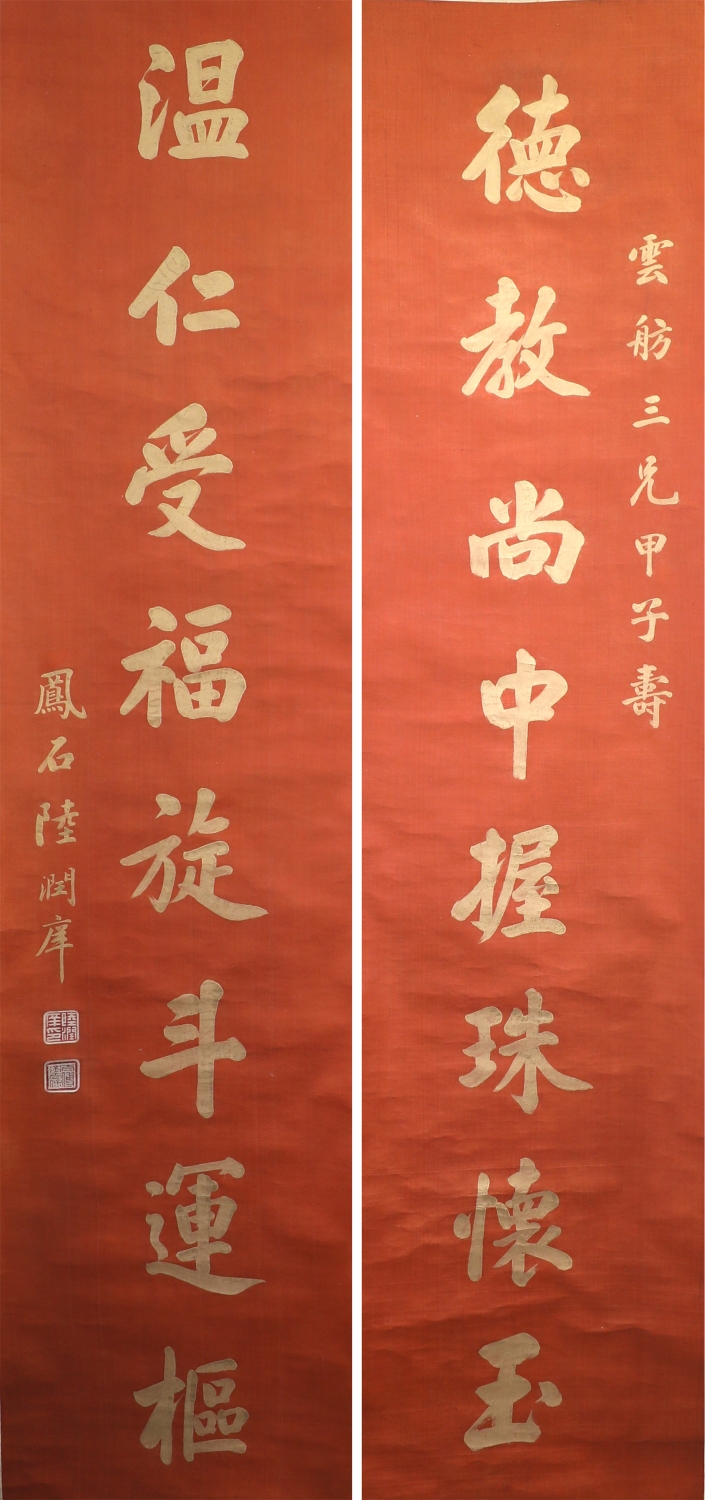 雲舫三兄甲子壽
德教尚中握珠懷玉
温仁受福旋斗運樞
鳳石陸潤庠
陸潤庠印